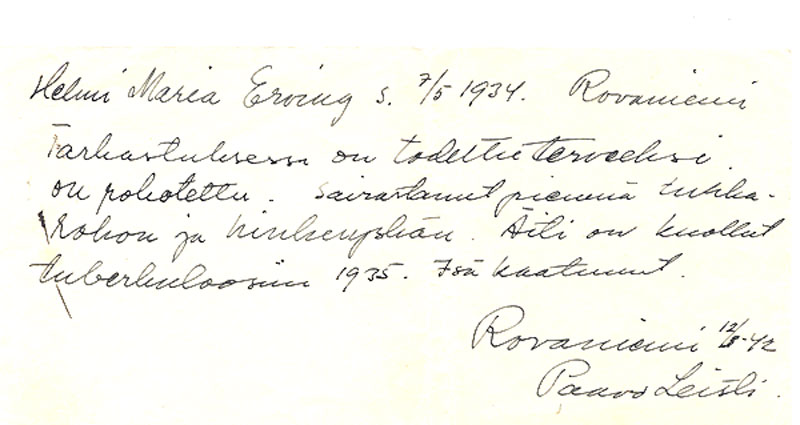 Helmi Maria Erving s. 7/5 1934. Rovaniemi
Tarkastuksessa on todettu terveeksi.
on rokotettu. Sairastanut pienenä tuhka-
rokon ja hinkuyskän. Äiti on kuollut
tuberkuloosiin 1935. Isä kaatunut.
Rovaniemi 12/8-42
Paavo Leisti.